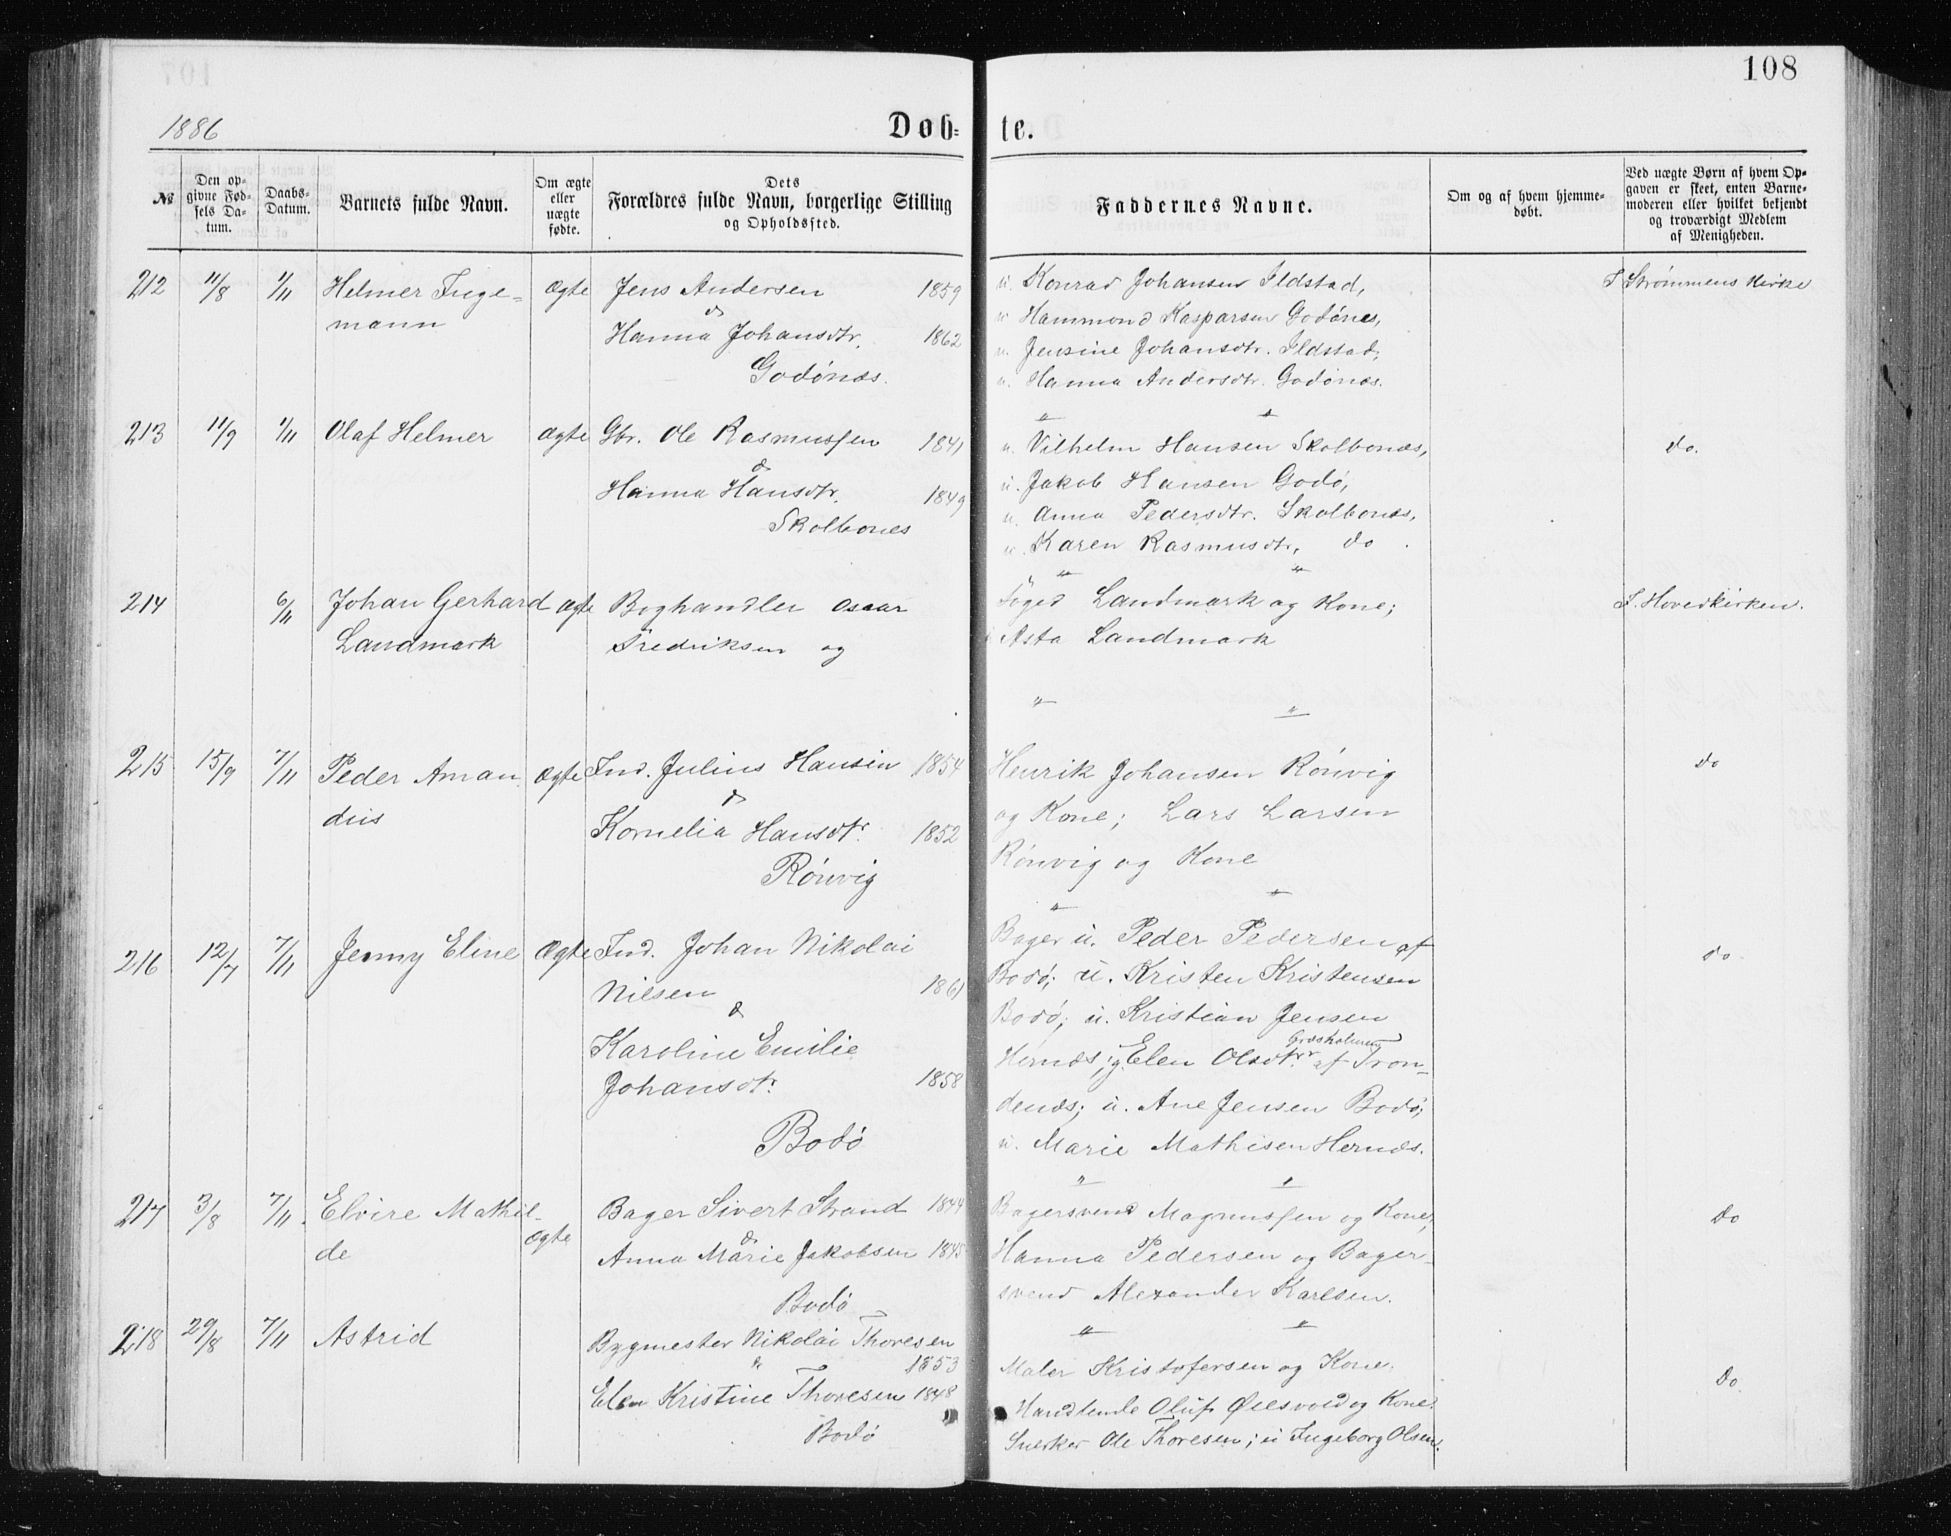 108
1886
Døb-
te.
№
Den op-
givne Fød-
sels Da-
tum.
Daabs-
Datum.
Barnets fulde Navn.
Om ægte
eller
uægte
fødte.
Dets
Forældres fulde Navn, borgerlige Stilling
og Opholdssted.
Faddernes Navne.
Om og af hvem hjemme-
døbt.
Ved uægte Børn af hvem Op-
gaven er skeet, enten Barne-
moderen eller hvilket bekjendt
og troværdigt Medlem
af Menigheden.
212 11/8 1/11 Helmer Inge-
mann
ægte
Jens Andersen 1859
&
Hanna Johansdtr. 1862
Godønæs.
u. Konrad Johansen Ildstad,
u Hammond Kasparsen Godønes,
u. Jensine Johansdtr. Ildstad,
u. Hanna Andersdtr. Godønæs.
I Strømmens Kirke
" "
213 11/9 1/11 Olaf Helmer
ægte
Gbr. Ole Rasmussen 1841
&
Hanna Hansdtr. 1849
Skolbones
u. Vilhelm Hansen Skolbonæs,
u. Jakob Hansen Godø,
u. Anna Pedersdtr. Skolbonæs,
u. Karen Rasmusdtr, do.
do.
" "
214 6/11 Johan Gerhard
Landmark
ægte
Boghandler Oscar
Fredriksen og
Foged Landmark og Kone;
Asta Landmark
I Hovedkirken.
" "
215 15/9 7/11 Peder Aman
dus
ægte
Ind. Julius Hansen 1854
&
Kornelia Hansdtr. 1852
Rønvig
Henrik Johansen Rønvig
og Kone; Lars Larsen
Rønvig og Kone
do
" "
216 12/7 7/11 Jenny Eline
ægte
Ind. Johan Nikolai
Nilsen 1861
&
Karoline Emilie
Johansdtr. 1858
Bodø
Bager u. Peder Pedersen af
Bodø; u. Kristen Kristensen
Bodø; u. Kristian Jensen
Græsholmen
Hernæs; g. Elen Olsdtr. af Tron-
denæs; u. Ane Jensen Bodø;
u. Marie Mathisen Hernæs.
do.
" "
217 3/8 7/11. Elvire Mathil-
de
ægte
Bager Sivert Strand 1844
&
Anna Marie Jakobsen 1845
Bodø
Bagersvend Magnussen og Kone,
Hanna Pedersen og Bager-
svend Alexander Karlsen.
Do
" "
218 29/8 7/11 Astrid
Bygmester Nikolai Thoresen
& 1853
Elen Kristine Thoresen 1848
Bodø
Maler Kristofersen og Kone.
Oluf og Kone.
Snerker Ole Thoresen; u Ingeborg Olsen.
Do.